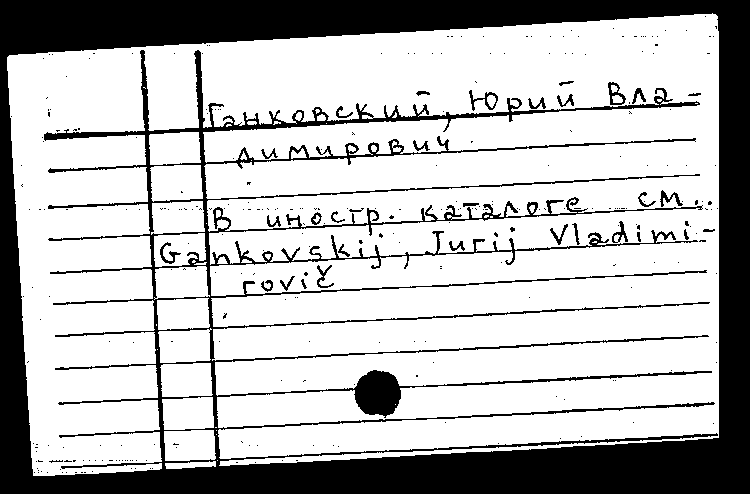 Ганковский, Юрий Вла-
димирович
В иностр. каталоге см.
Gankovskij, Jurij Vladimi-
rovič